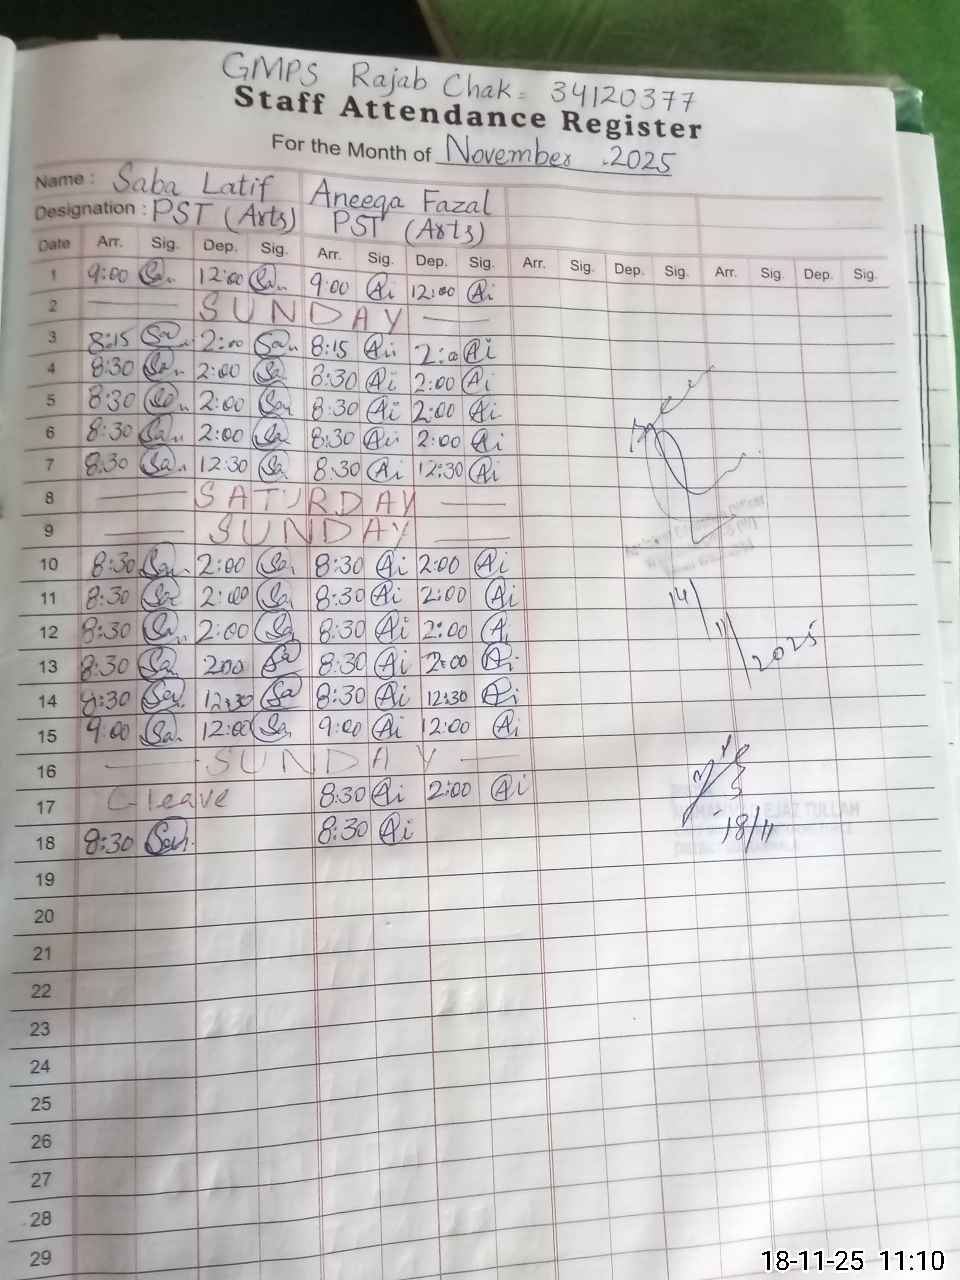 GMPS Rajab Chak = 34120377
Staff Attendance Register
For the Month of November .2025
Name : Saba Latif Aneeqa Fazal
Designation : PST (Arts) PST (Arts)
Date Arr. Sig. Dep. Sig. Arr. Sig. Dep. Sig. Arr. Sig. Dep. Sig. Arr. Sig. Dep. Sig.
1 9:00 Sa 12:00 Sa 9:00 Ai 12:00 Ai
2 SUNDAY
3 8:15 Sa 2:00 Sa 8:15 Ai 2:00 Ai
4 8:30 Sa 2:00 Sa 8:30 Ai 2:00 Ai
5 8:30 Sa 2:00 Sa 8:30 Ai 2:00 Ai
6 8:30 Sa 2:00 Sa 8:30 Ai 2:00 Ai
7 8:30 Sa 12:30 Sa 8:30 Ai 12:30 Ai
8 SATURDAY
9 SUNDAY
10 8:30 Sa 2:00 Sa 8:30 Ai 2:00 Ai
11 8:30 Sa 2:00 Sa 8:30 Ai 2:00 Ai
12 8:30 Sa 2:00 Sa 8:30 Ai 2:00 Ai
13 8:30 Sa 200 Sa 8:30 Ai 2:00 Ai
14 8:30 Sa 12:30 Sa 8:30 Ai 12:30 Ai
15 9:00 Sa 12:00 Sa 9:00 Ai 12:00 Ai
16 SUNDAY
17 C-leave 8:30 Ai 2:00 Ai
18 8:30 Sa 8:30 Ai
19
20
21
22
23
24
25
26
27
28
29
14/11/2025
EJAZ TULLAH
18/11
18-11-25 11:10